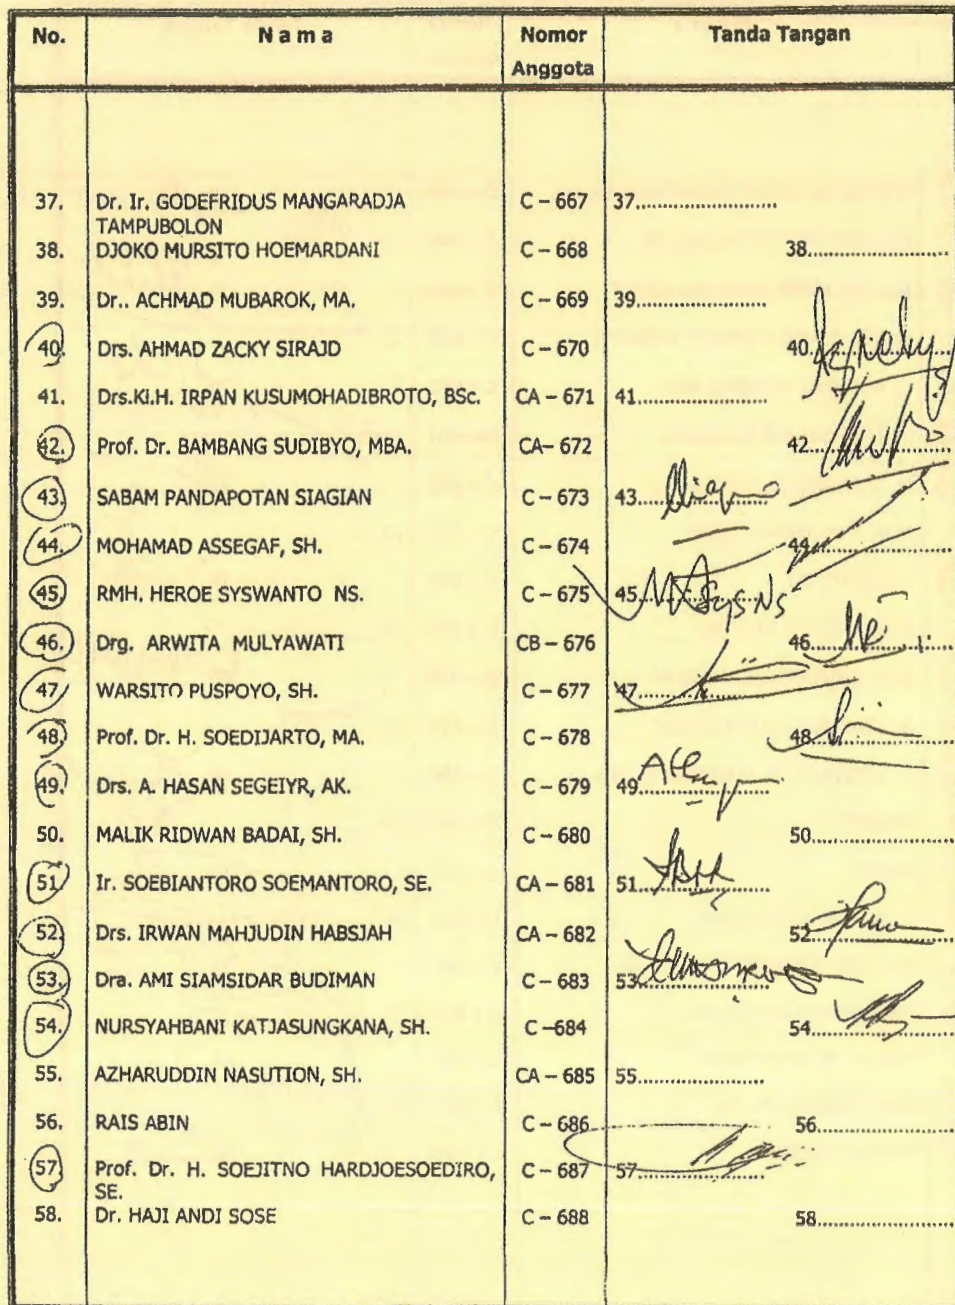 No. N a m a Nomor Anggota Tanda Tangan
37. Dr. Ir. GODEFRIDUS MANGARADJA TAMPUBOLON C – 667 37........................
38. DJOKO MURSITO HOEMARDANI C – 668 38........................
39. Dr.. ACHMAD MUBAROK, MA. C – 669 39......................
40. Drs. AHMAD ZACKY SIRAJD C – 670 40.
41. Drs.KI.H. IRPAN KUSUMOHADIBROTO, BSc. CA – 671 41......................
42. Prof. Dr. BAMBANG SUDIBYO, MBA. CA– 672 42.
43. SABAM PANDAPOTAN SIAGIAN C – 673 43.
44. MOHAMAD ASSEGAF, SH. C – 674 44........................
45. RMH. HEROE SYSWANTO NS. C – 675 45.
46. Drg. ARWITA MULYAWATI CB – 676 46.
47. WARSITO PUSPOYO, SH. C – 677 47.
48. Prof. Dr. H. SOEDIJARTO, MA. C – 678 48.
49. Drs. A. HASAN SEGEIYR, AK. C – 679 49.
50. MALIK RIDWAN BADAI, SH. C – 680 50........................
51. Ir. SOEBIANTORO SOEMANTORO, SE. CA – 681 51.
52. Drs. IRWAN MAHJUDIN HABSJAH CA – 682 52.
53. Dra. AMI SIAMSIDAR BUDIMAN C – 683 53.
54. NURSYAHBANI KATJASUNGKANA, SH. C –684 54.
55. AZHARUDDIN NASUTION, SH. CA – 685 55......................
56. RAIS ABIN C – 686 56........................
57. Prof. Dr. H. SOEJITNO HARDJOESOEDIRO, SE. C – 687 57.
58. Dr. HAJI ANDI SOSE C – 688 58........................